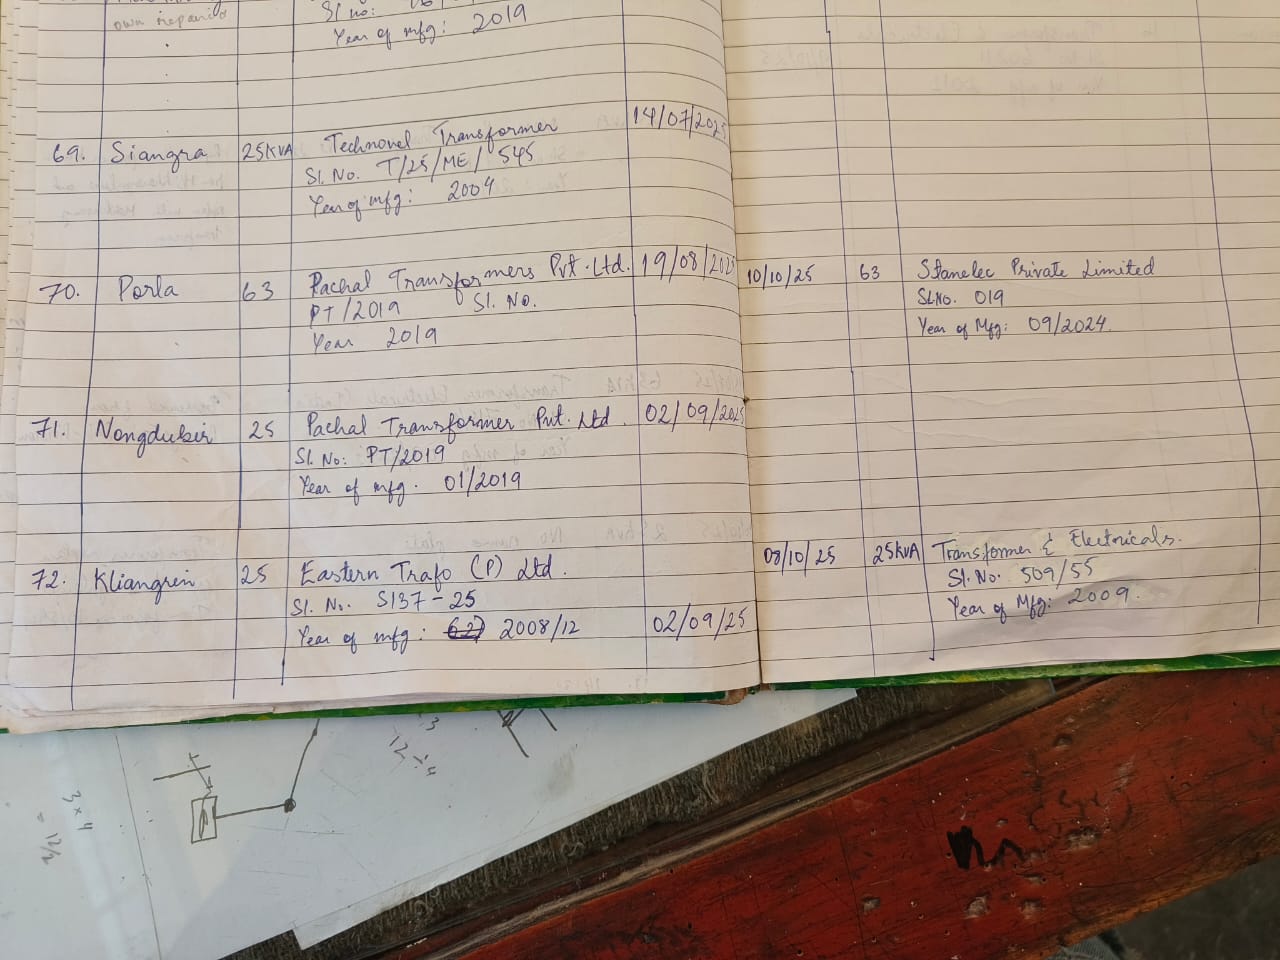 own repaired
Sl no:
Year of mfg: 2019
69. Siangra 25KVA Technovel Transformer 14/07/2025
Sl. No. T/25/ME/ 545
Year of mfg: 2004
70. Porla 63 Pachal Transformers Pvt. Ltd. 19/08/2025 10/10/25 63 Stanelec Private Limited
PT/2019 Sl. No. Sl.No. 019
Year 2019 Year of Mfg: 09/2024
71. Nongdubir 25 Pachal Transformer Pvt. Ltd. 02/09/2025
Sl. No: PT/2019
Year of mfg. 01/2019
72. Kliangrin 25 Eastern Trafo (P) Ltd. 08/10/25 25KVA Transformer & Electricals.
Sl. No. S137-25 Sl. No. 509/55
Year of mfg: 2008/12 02/09/25 Year of Mfg: 2009.
3
12 ÷ 4
3 x 4
= 12